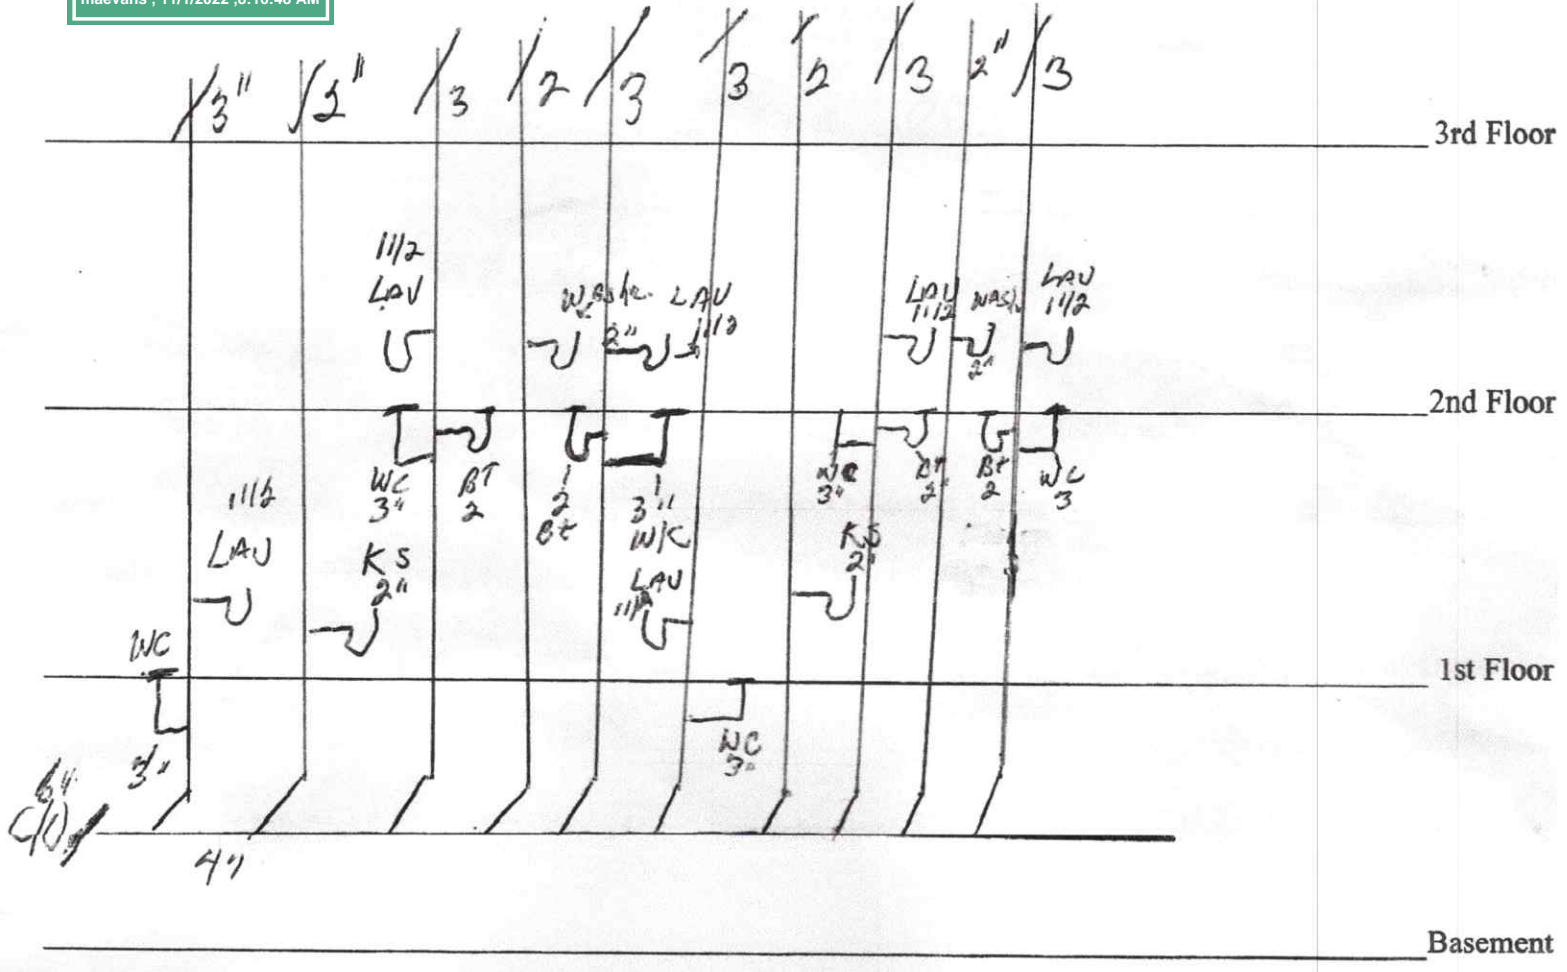 maevans , 11/1/2022 ,8:16:48 AM
3" 2" 3 2 3 3 2 3 2" 3
3rd Floor
11/2
LAV
Wash
2"
LAV
11/2
LAV
11/2
Wash
2"
LAV
11/2
2nd Floor
WC
3"
BT
2
2
Bt
3"
W/C
WC
3"
Bt
2"
Bt
2
WC
3
11/2
LAV
KS
2"
LAV
11/2
KS
2"
WC
1st Floor
3"
WC
3"
C/O
4"
Basement